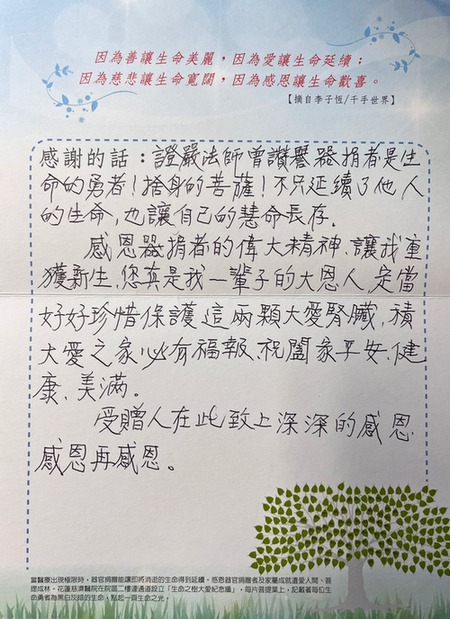 因為善讓生命美麗，因為愛讓生命延續；
因為慈悲讓生命寬闊，因為感恩讓生命歡喜。
【摘自李子恆/千手世界】
感謝的話：證嚴法師曾讚譽器捐者是生
命的勇者！捨身的菩薩！不只延續了他人
的生命，也讓自己的慧命長存．
感恩器捐者的偉大精神、讓我重
獲新生、您真是我一輩子的大恩人、定當
好好珍惜保護這兩顆大愛腎臟，積
大愛之家必有福報、祝闔家平安、健
康、美滿。
受贈人在此致上深深的感恩
感恩再感恩。
當醫療出現極限時，器官捐贈能讓即將消逝的生命得到延續。感恩器官捐贈者及家屬成就遺愛人間、菩
提成林。花蓮慈濟醫院在院區二樓連通道設立「生命之樹大愛紀念牆」，每片菩提葉上，記載著每位生
命勇者為黑白灰暗的生命，點起一頁生命之光。